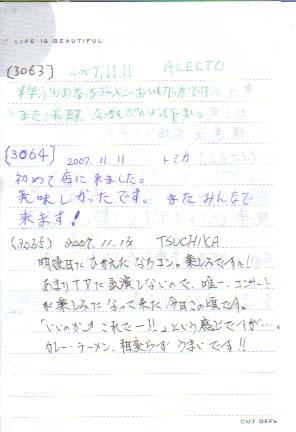 LIFE IS BEAUTIFUL
(3063) 2007.11.11 ALECTO
おいしかったです
また
(3064) 2007.11.11 トミカ
初めて店に来ました。
美味しかったです。またみんなで
来ます!
(3065) 2007.11.13 TSUCHIKA
明後日にひかえたなちコン。楽しみですネ!
あまりTVに出演しないので、唯一、コンサート
が楽しみになって来た今日この頃です。
「いいのかっ これでー!!」という感じですが…。
カレーラーメン、相変らずうまいです!!
CUT OFF▸